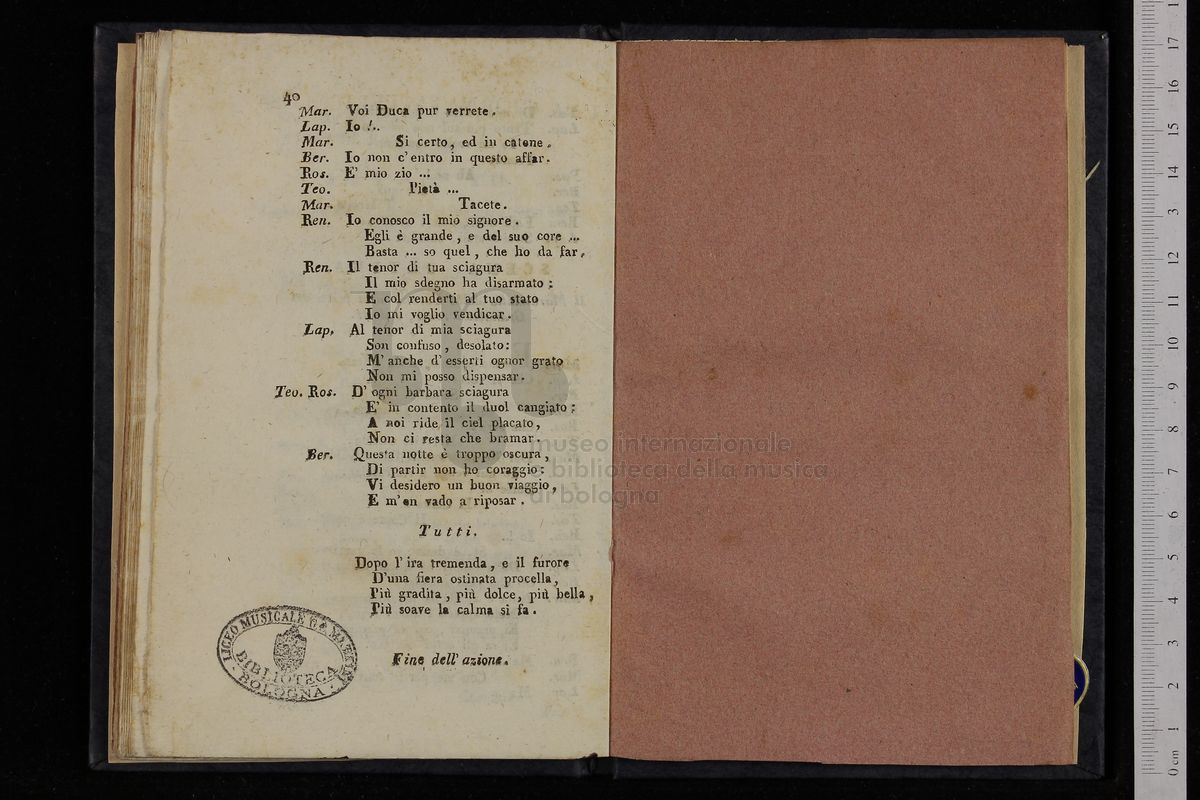 40
Mar. Voi Duca pur verrete.
Lap. Io !..
Mar. Si certo, ed in catene.
Ber. Io non c'entro in questo affar.
Ros. E' mio zio ...
Teo. Pietà ...
Mar. Tacete.
Ren. Io conosco il mio signore.
Egli è grande, e del suo core ...
Basta ... so quel, che ho da far,
Ren. Il tenor di tua sciagura
Il mio sdegno ha disarmato:
E col renderti al tuo stato
Io mi voglio vendicar.
Lap. Al tenor di mia sciagura
Son confuso, desolato:
M'anche d'esserti ognor grato
Non mi posso dispensar.
Teo. Ros. D'ogni barbara sciagura
E' in contento il duol cangiato:
A noi ride il ciel placato,
Non ci resta che bramar.
Ber. Questa notte è troppo oscura,
Di partir non ho coraggio:
Vi desidero un buon viaggio,
E m'en vado a riposar.
Tutti.
Dopo l'ira tremenda, e il furore
D'una fiera ostinata procella,
Più gradita, più dolce, più bella,
Più soave la calma si fa.
Fine dell'azione.
LICEO MUSICALE
BIBLIOTECA
BOLOGNA
museo internazionale
e biblioteca della musica
di bologna
0 cm 1 2 3 4 5 6 7 8 9 10 11 12 13 14 15 16 17